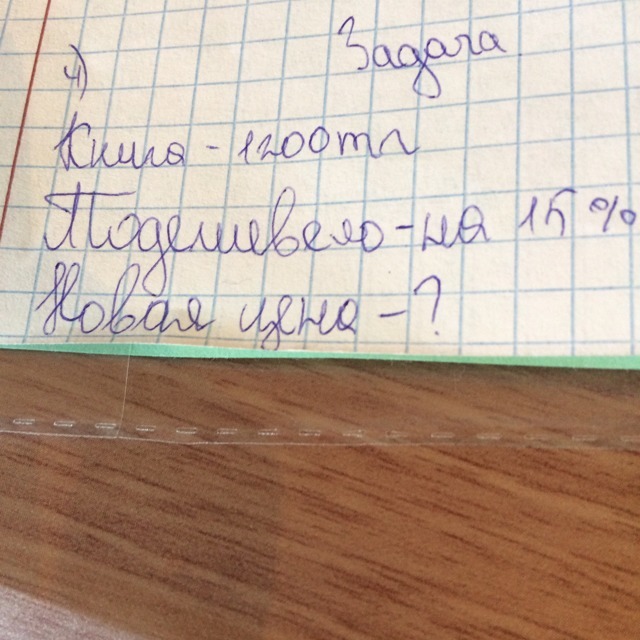 Задача
4)
Книга - 1200 тг
Подешевело - на 15%
Новая цена - ?